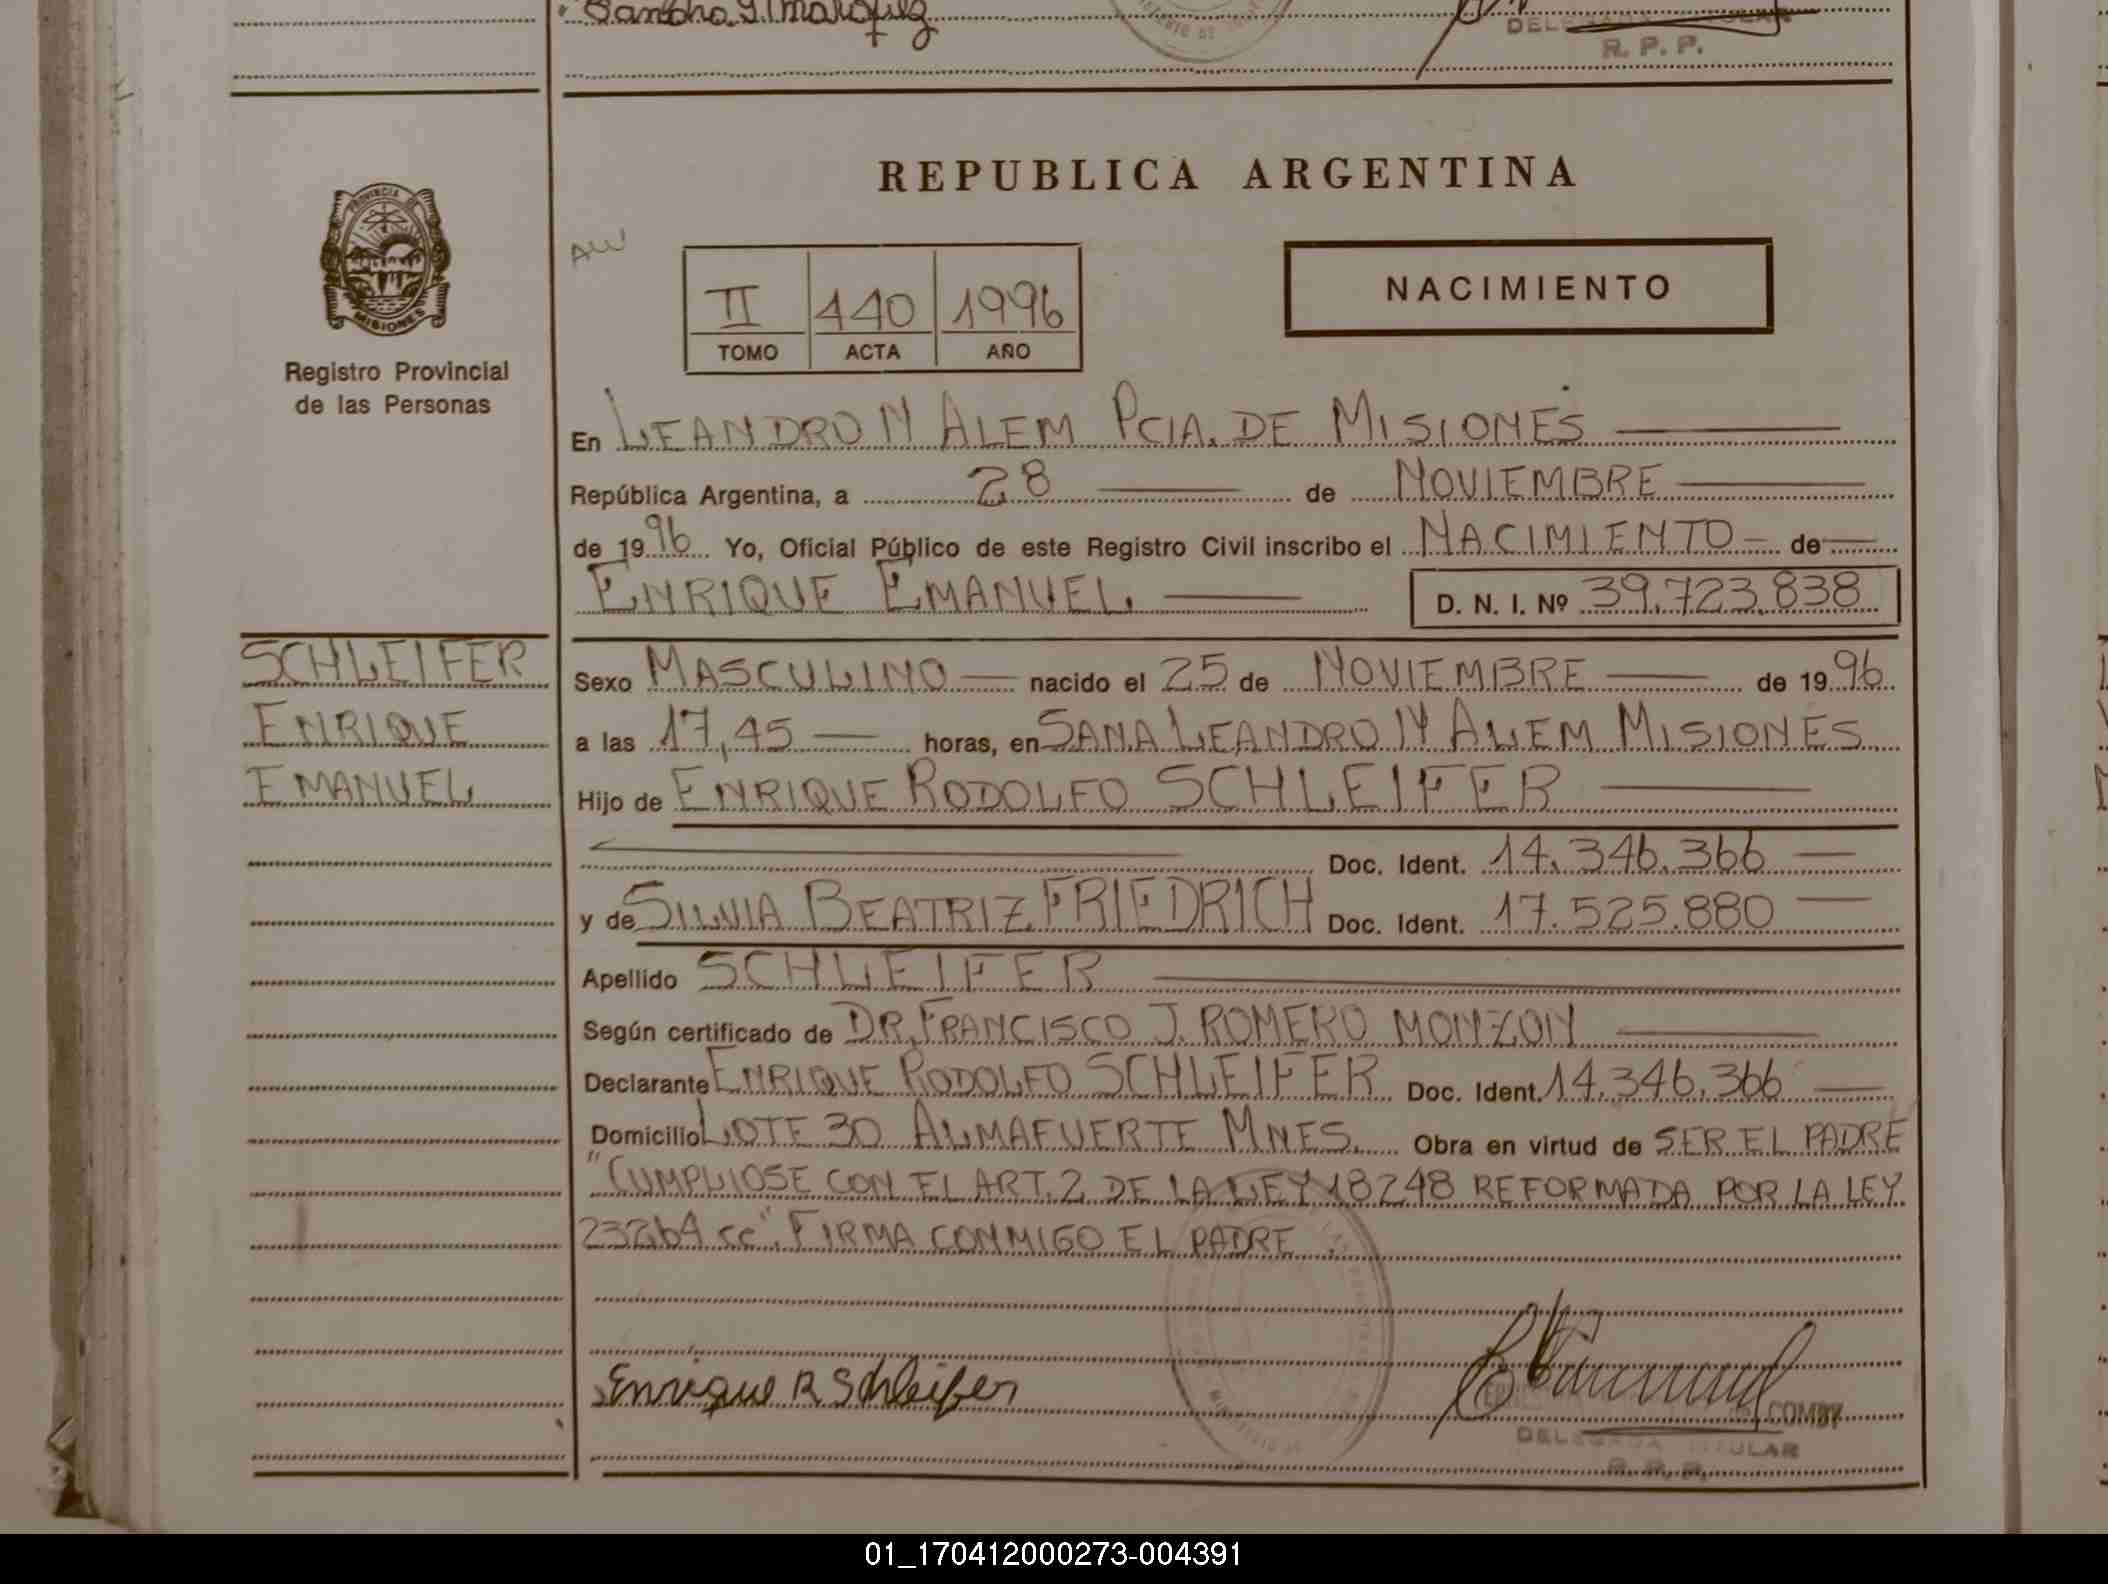 Sandra I. Marquez
DELEGADA TITULAR
R. P. P.
PROVINCIA DE
MISIONES
Registro Provincial
de las Personas
REPUBLICA ARGENTINA
AW
II 440 1996
TOMO ACTA AÑO
NACIMIENTO
En LEANDRO N ALEM PCIA. DE MISIONES
República Argentina, a 28 de NOVIEMBRE
de 1996 Yo, Oficial Público de este Registro Civil inscribo el NACIMIENTO de
ENRIQUE EMANUEL. D. N. I. Nº 39.723.838
SCHLEIFER
ENRIQUE
EMANUEL
Sexo MASCULINO nacido el 25 de NOVIEMBRE de 1996
a las 17,45 horas, en SANA LEANDRO N ALEM MISIONES
Hijo de ENRIQUE RODOLFO SCHLEIFER
Doc. Ident. 14.346.366
y de SILVIA BEATRIZ FRIEDRICH Doc. Ident. 17.525.880
Apellido SCHLEIFER
Según certificado de DR. FRANCISCO J. ROMERO MONZON
Declarante ENRIQUE RODOLFO SCHLEIFER Doc. Ident. 14.346.366
Domicilio LOTE 30 ALMAFUERTE MNES. Obra en virtud de SER EL PADRE
"CUMPLIOSE CON EL ART. 2 DE LA LEY 18248 REFORMADA POR LA LEY
23264 cc". FIRMA CONMIGO EL PADRE.
Enrique R Schleifer
DELEGADA TITULAR
R. P. P.
01_170412000273-004391